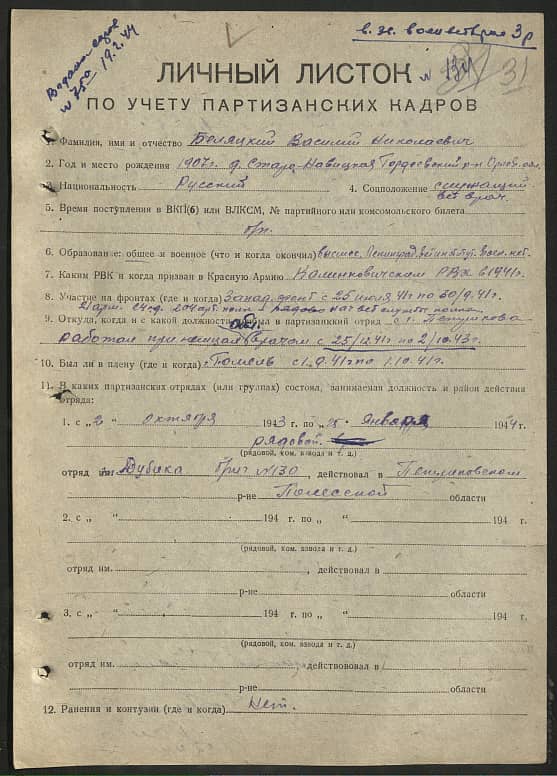 в. ж. воен ветврач 3 р
Выдана справ
№ 750 19.2.44
ЛИЧНЫЙ ЛИСТОК № 134 31
ПО УЧЕТУ ПАРТИЗАНСКИХ КАДРОВ
1. Фамилия, имя и отчество Беляцкий Василий Николаевич
2. Год и место рождения 1907 г. д. Старо-Новицкая Гордеевский р-н Орлов. обл.
3. Национальность Русский 4. Соцположение служащий
вет врач.
5. Время поступления в ВКП(б) или ВЛКСМ, № партийного или комсомольского билета
б/п.
6. Образование: общее и военное (что и когда окончил) высшее. Ленинград. вет институт. Воен. нет.
7. Каким РВК и когда призван в Красную Армию Калинковичском РВК в 1941 г.
8. Участие на фронтах (где и когда) Запад. фронт с 25 июля 41 г по 30/9.41 г.
21 арм. с4 сд. 204 арт. полк рядово
9. Откуда, когда и с какой должности прибыл в партизанский отряд с г. Петрикова
работал при немцах врачом с 25/12.41 г по 2/10.43 г.
10. Был ли в плену (где и когда) Гомель с 1.9.41 г по 1.10.41 г.
11. В каких партизанских отрядах (или группах) состоял, занимаемая должность и район действия
отряда:
1. с „2 " октября 1943 г. по „15 " января 1944 г.
рядовой
(рядовой, ком. взвода и т. д.)
отряд им. Дубика бриг №130, действовал в Петриковском
р-не Полесской области
2. с „ " 194 г. по „ " 194 г.
(рядовой, ком. взвода и т. д.)
отряд им. , действовал в
р-не области
3. с „ " 194 г. по „ " 194 г.
(рядовой, ком. взвода и т. д.)
отряд им. действовал в
р-не области
12. Ранения и контузии (где и когда) Нет.